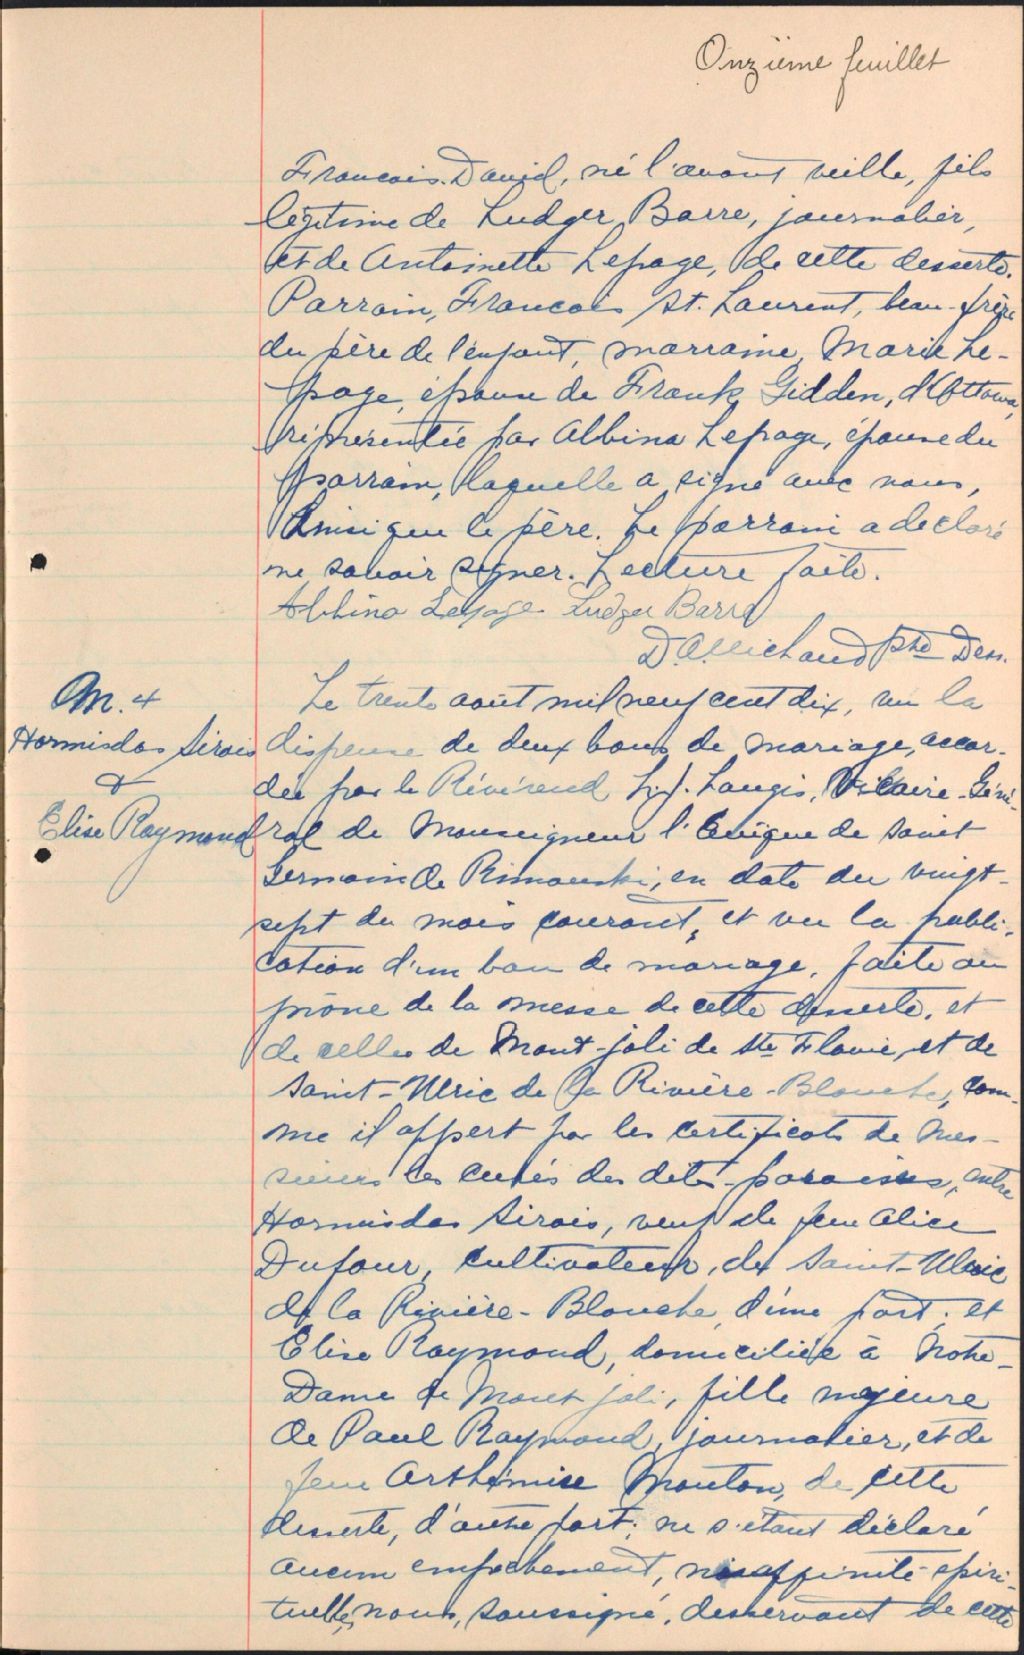 Onzième feuillet
Francois. David, né l'avant veille, fils
légitime de Ludger Barre, journalier,
et de Antoinette Lepage, de cette desserte.
Parrain, Francois St. Laurent, beau-frère
du père de l'enfant, marraine, Marie Le-
page, épouse de Frank Gidden, d'Ottawa,
représentée par Albina Lepage, épouse du
parrain, laquelle a signé avec nous,
ainsi que le père. Le parrain a declaré
ne savoir signer. Lecture faite.
Albina Lepage Ludger Barre
D. A. Michaud Ptre Dess.
M. 4
Hormisdas Sirois
&
Elise Raymond
Le trente août mil neuf cent dix, vu la
dispense de deux bans de mariage, accor-
dée par le Révérend L. J. Langis, Vicaire-Géné-
ral de Monseigneur l'Evêque de Saint
Germain de Rimouski, en date du vingt-
sept du mois courant, et vu la publi-
cation d'un ban de mariage, faite au
prône de la messe de cette desserte, et
de celles de Mont-joli de Ste Flavie, et de
Saint-Ulric de la Rivière-Blanche, com-
me il appert par les certificats de Mes-
sieurs les curés des dites paroisses, entre
Hormisdas Sirois, veuf de feue Alice
Dufour, cultivateur, de Saint-Ulric
de la Rivière-Blanche, d'une part; et
Elise Raymond, domiciliée à Notre-
Dame de Mont joli, fille majeure
de Paul Raymond, journalier, et de
feue Arthémise Mouton, de cette
desserte, d'autre part; ne s'étant déclaré
aucun empêchement, ni affinité spiri-
tuelle, nous, soussigné, desservant de cette